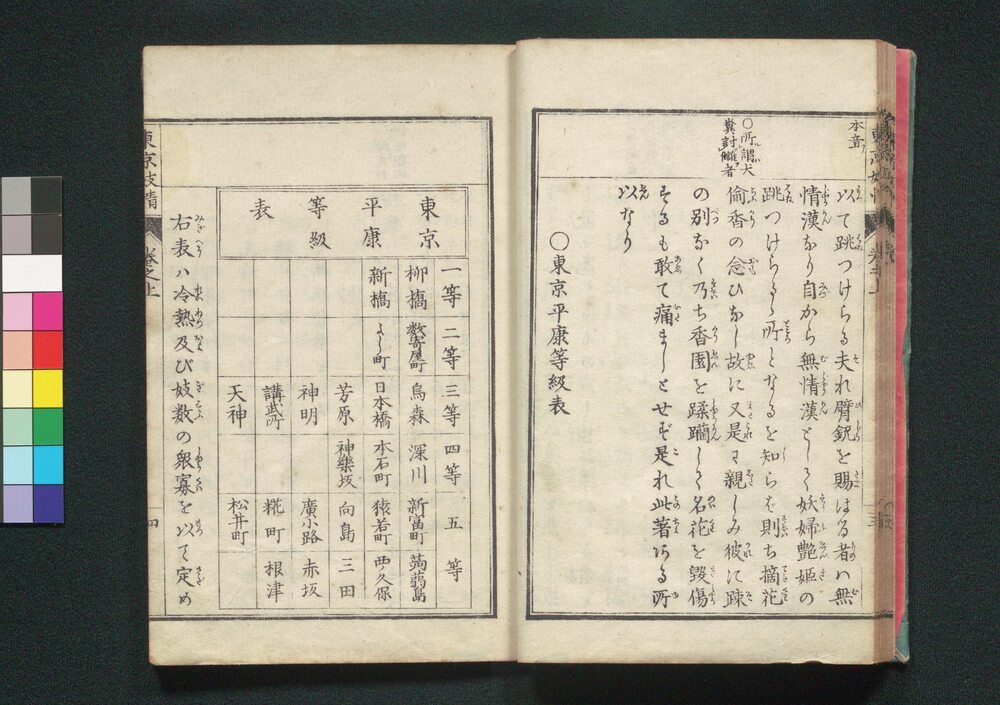 本音
○所謂犬
糞討讎者
以て跳つけらる夫れ臂鋺を賜はる者ハ無
情漢なり自から無情漢として妖婦艶姫の
跳つけらるゝ所となるを知らば則ち摘花
偷香の念ひなし故に又是に親しみ彼に疎
の別なく乃ち香園を蹂躪して名花を毀傷
するも敢て痛ましとせず是れ此著ある所
以なり
○東京平康等級表
東京
平康
等級
表
一等
二等
三等
四等
五等
柳橋
数寄屋町
烏森
深川
新富町
蒟蒻島
新橋
よし町
日本橋
本石町
猿若町
西ノ久保
芳原
神樂坂
向島
三田
神明
廣小路
赤坂
講武所
糀町
根津
天神
松井町
右表ハ冷熱及び妓数の衆寡を以て定め
東京妓情
巻之上
四